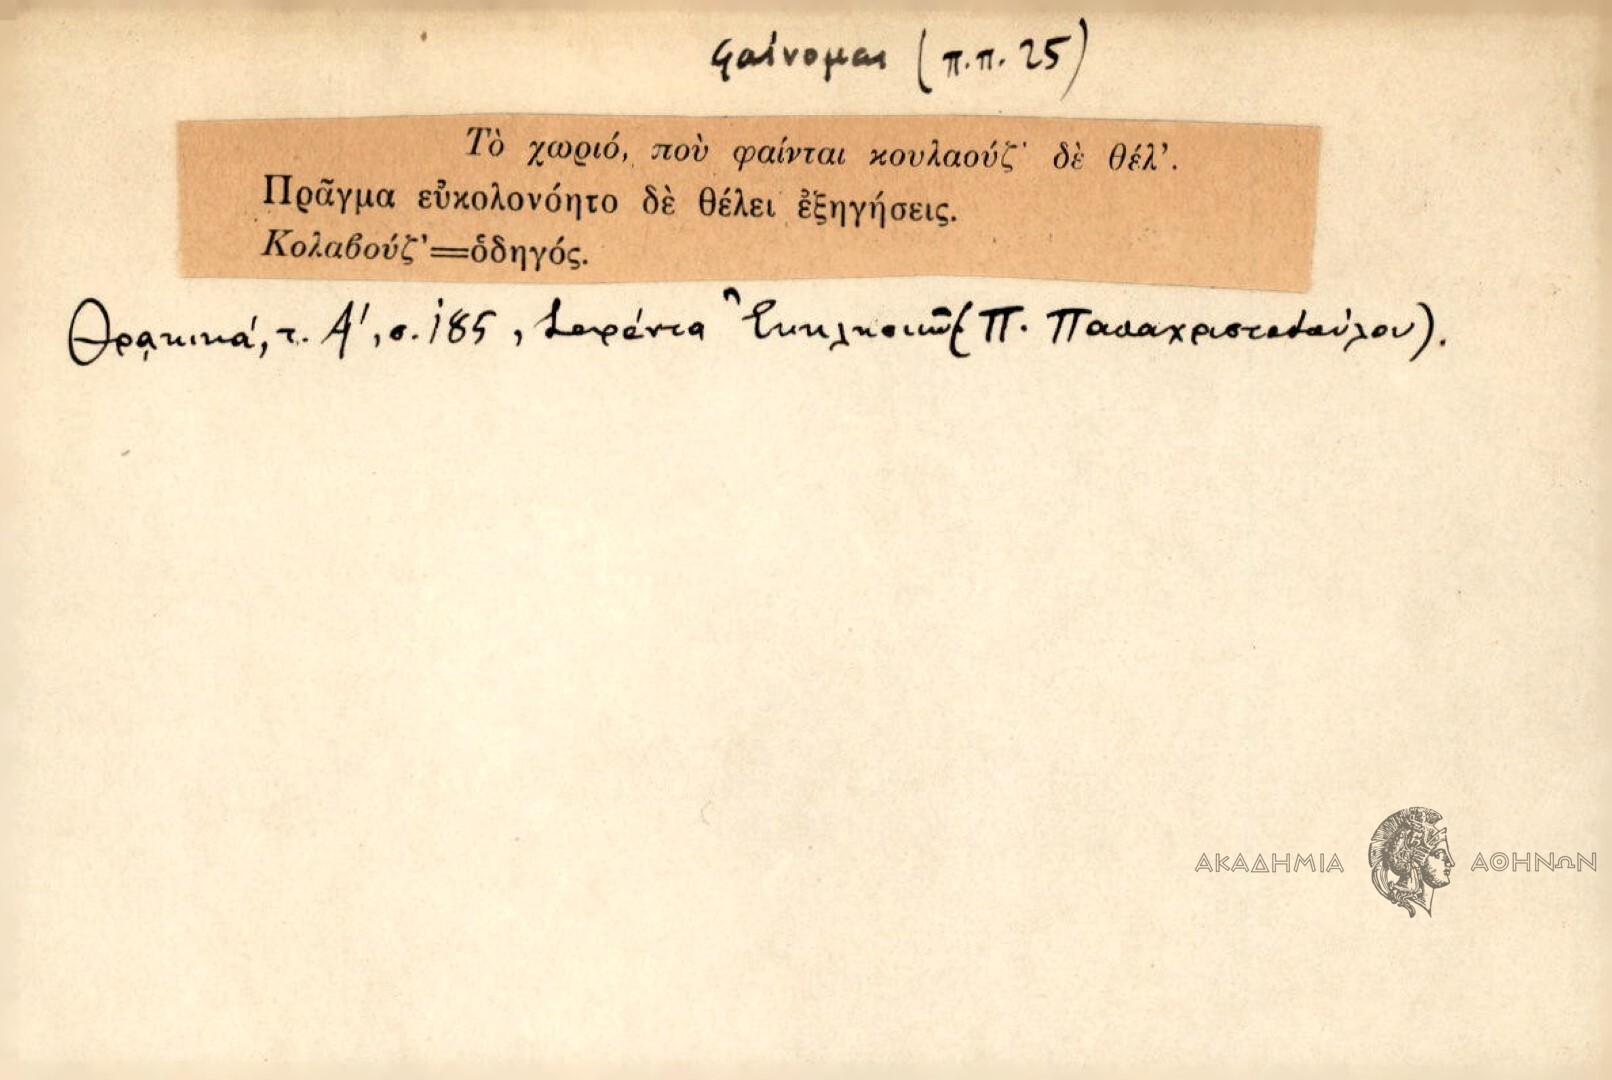 φαίνομαι (π.π. 25)
Τὸ χωριό, ποὺ φαίνται κουλαούζ' δὲ θέλ'.
Πρᾶγμα εὐκολονόητο δὲ θέλει ἐξηγήσεις.
Κολαβούζ'=ὁδηγός.
Θρᾳκικά, τ. Α', σ. 185, Σαράντα Ἐκκλησιῶν (Π. Παπαχριστοδούλου).
ΑΚΑΔΗΜΙΑ ΑΘΗΝΩΝ